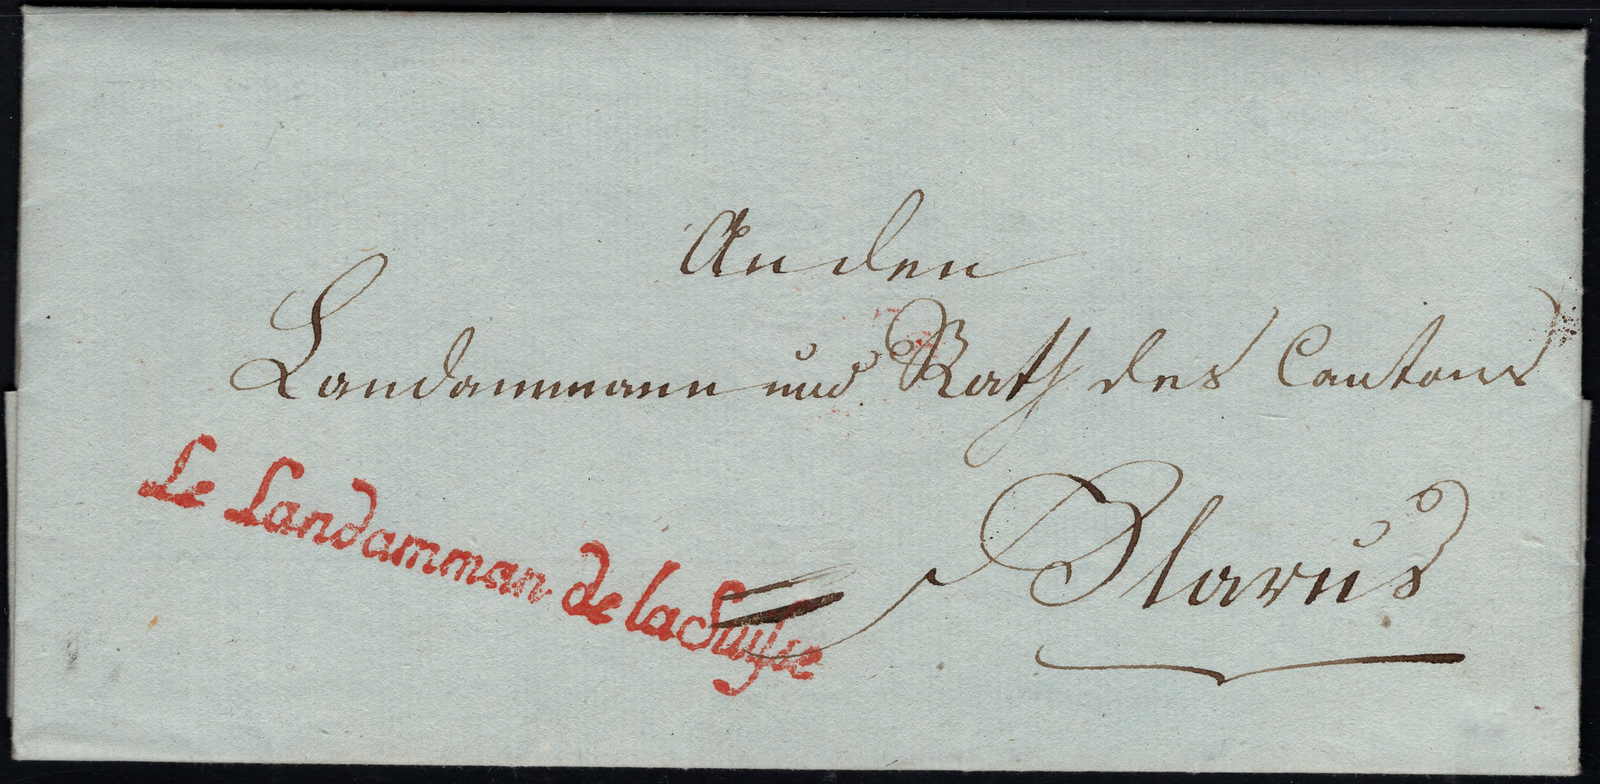 An den
Landammann und Rath des Cantons
Glarus
Le Landamman de la Suisse